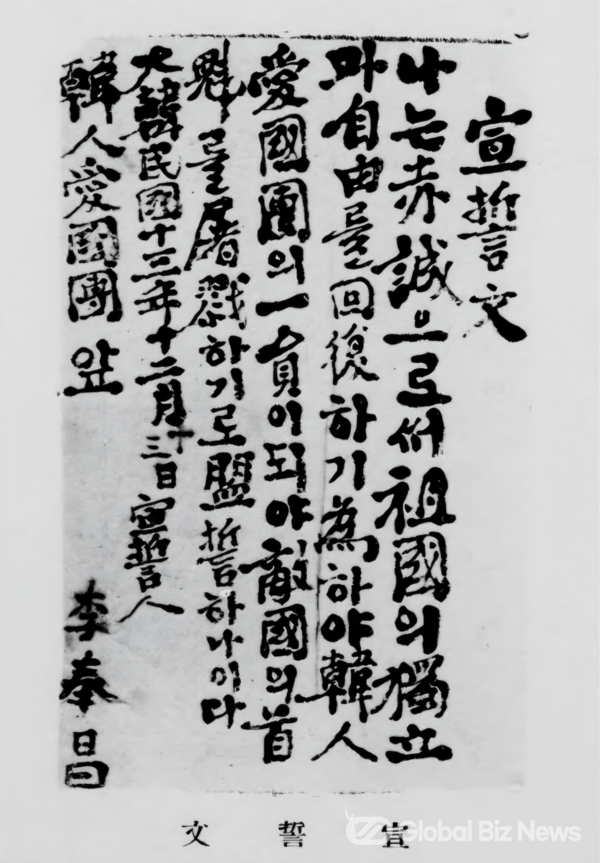 宣誓文
나는赤誠으로써祖國의獨立
과自由를回復하기爲하야韓人
愛國團의一員이되야敵國의首
魁를屠戮하기로盟誓하나이다
大韓民國十三年十二月十三日 宣誓人
李奉昌
韓人愛國團 앞
宣誓文
Global Biz News